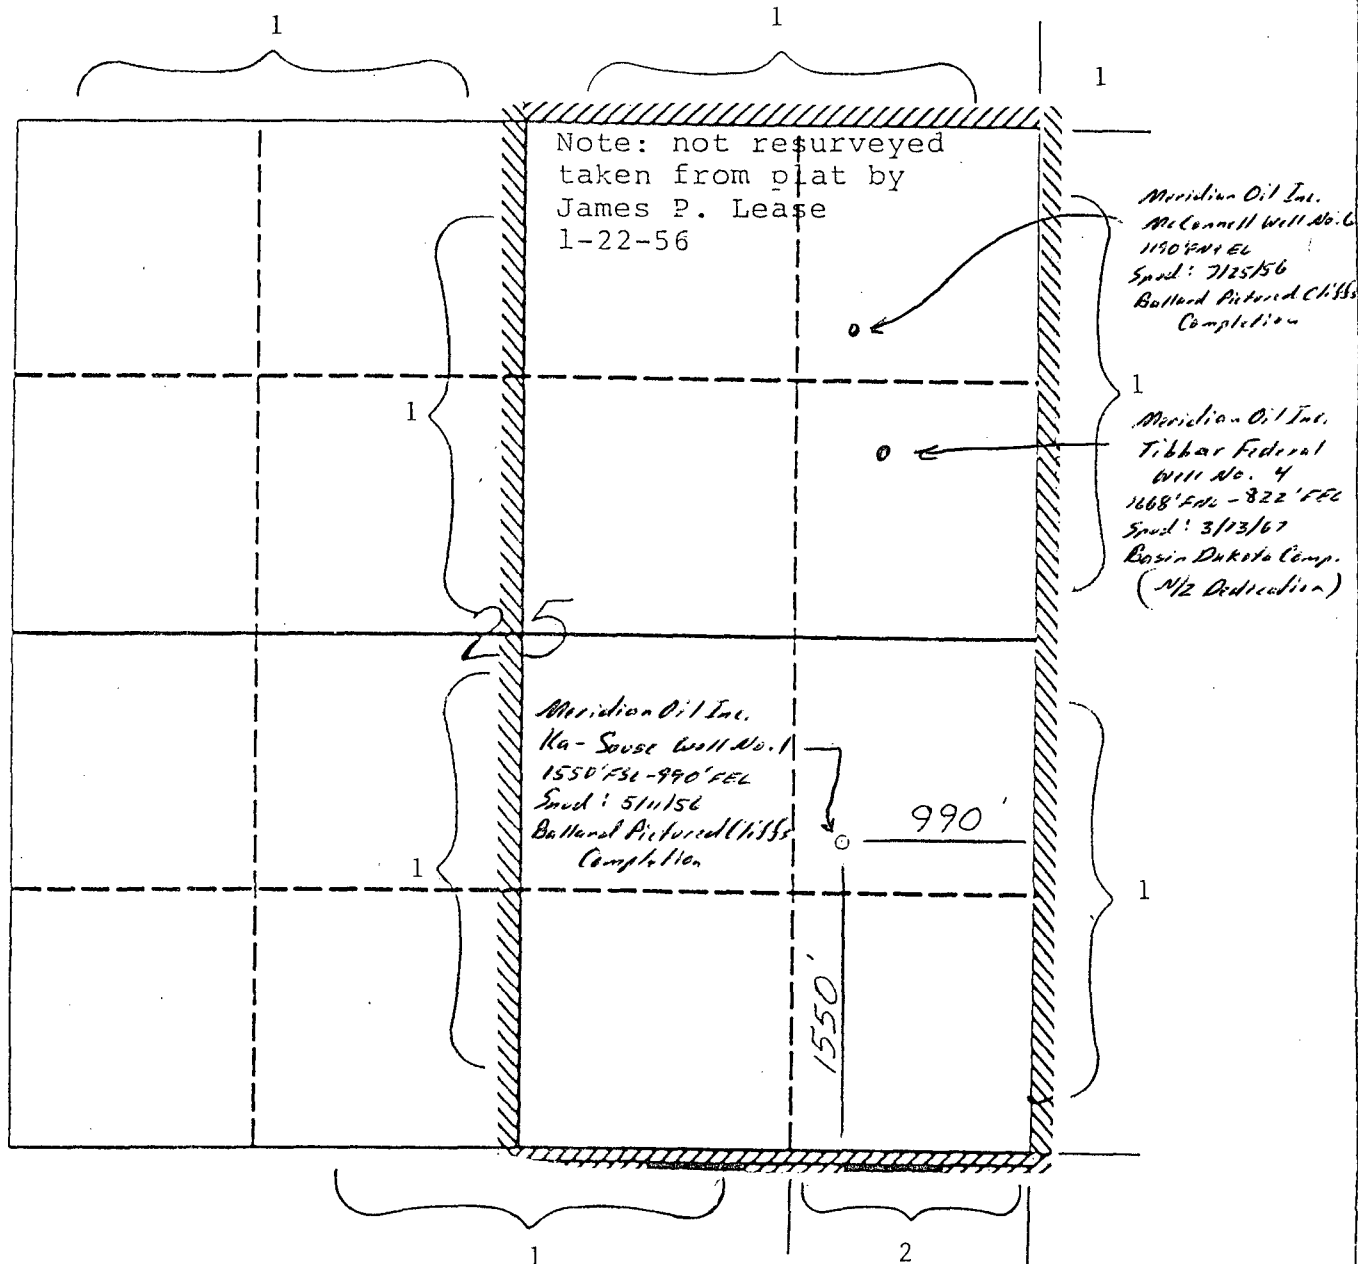 1
1
1
Note: not resurveyed
taken from plat by
James P. Lease
1-22-56
Meridian Oil Inc.
McConnell Well No. 6
1190' FN & EL
Spud: 7/25/56
Ballard Pictured Cliffs
Completion
1
1
Meridian Oil Inc.
Tibbar Federal
Well No. 4
1668' FNL - 822' FEL
Spud: 3/13/67
Basin Dakota Comp.
(N/2 Dedication)
25
Meridian Oil Inc.
Ka-Souse Well No. 1
1550' FSL - 990' FEL
Spud: 5/11/56
Ballard Pictured Cliffs
Completion
990'
1
1
1550'
1
2